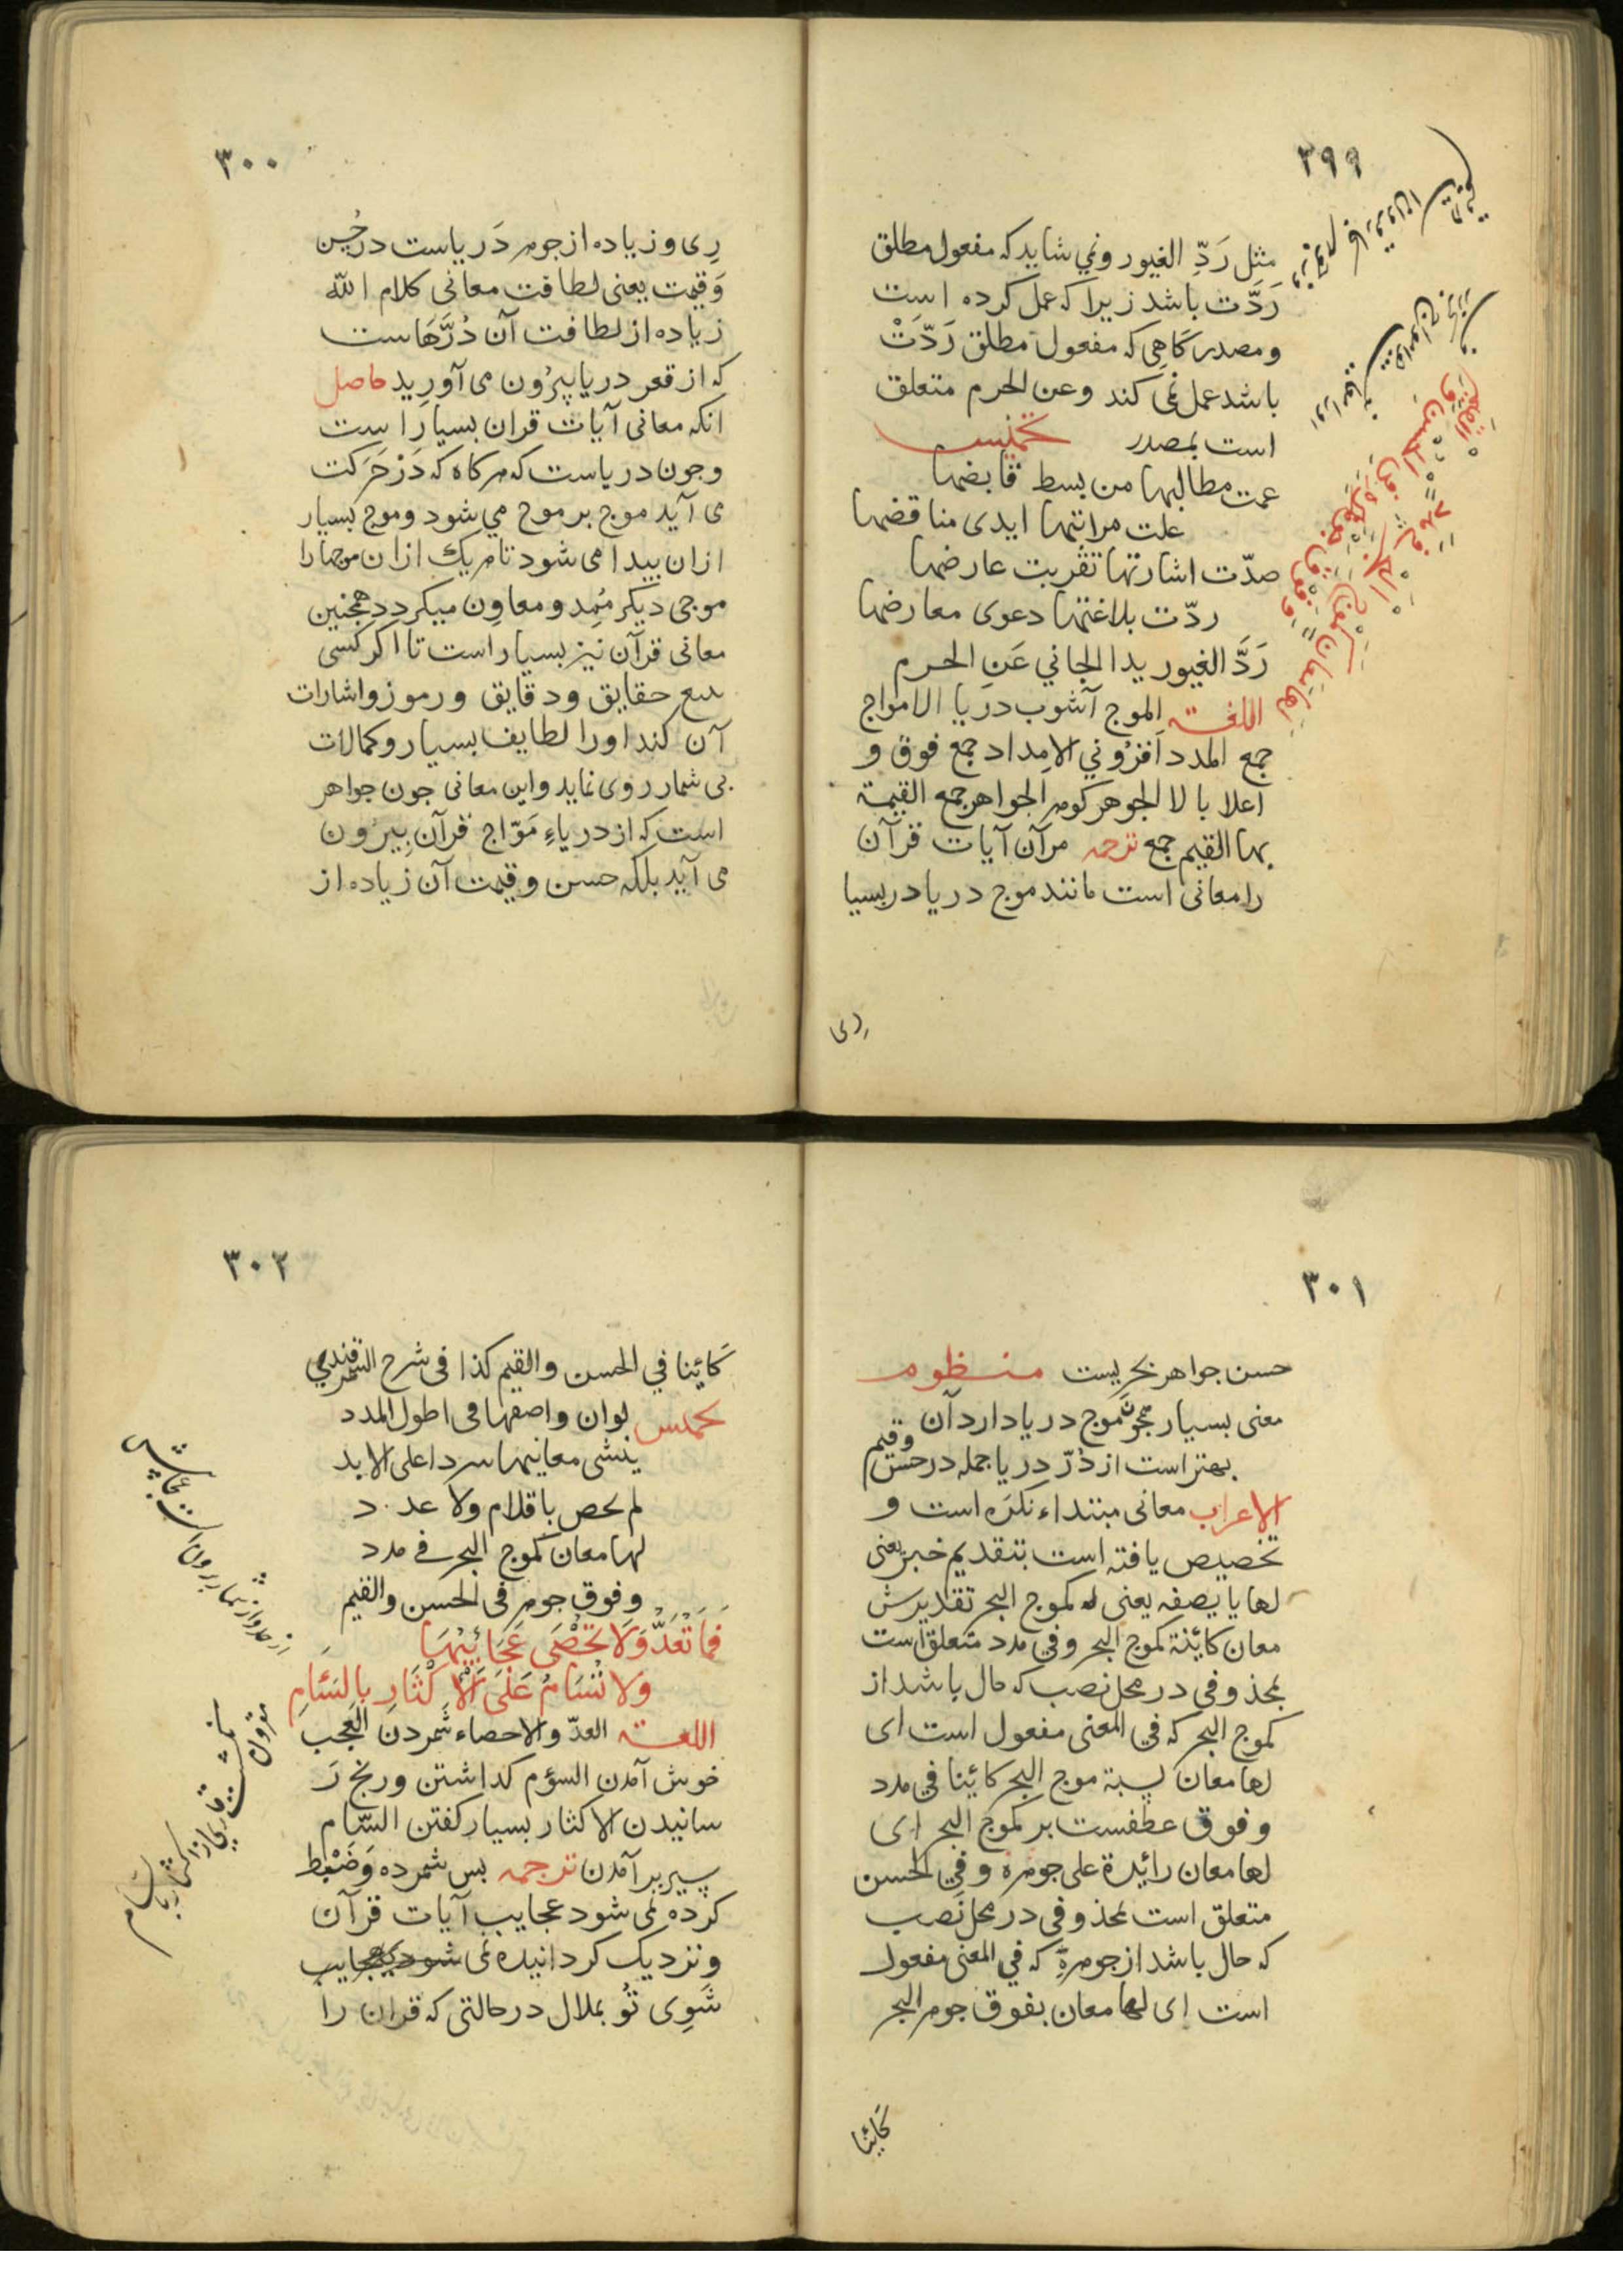 ٣٩٩
مثل رَدِّ الغيور ونمي شايد كه مفعول مطلق
رَدَّت باشد زيرا كه عمل كرده است
ومصدر كاهى كه مفعول مطلق رَدَّتْ
باشد عمل نمى كند وعن الحرم متعلق
است بمصدر تخميس
عمت مطالبها من بسط قابضها
علت مراتبها ايدى مناقضها
صدّت اشارتها تقريت عارضها
ردّت بلاغتها دعوى معارضها
رَدَّ الغيور يدا الجاني عَنِ الحرم
اللغة الموج آشوب دريا الامواج
جمع المدد افزُوني الامداد جمع فوق و
اعلا بالا الجوهر كوهر الجواهر جمع القيمة
بها القيم جمع ترجمه مرآن آيات قرآن
را معانى است مانند موج دريا در بسيا
رى
لَهَا مَعَانٍ كَمَوْجِ الْبَحْرِ فِي مَدَدٍ
وَفَوْقَ جَوْهَرِهِ فِي الْحُسْنِ وَالْقِيَمِ
٣٠٠
رِى وزياده از جوهر دَرياست در حُسن
وَقيمت يعنى لطافت معانى كلام الله
زياده از لطافت آن دُرَّهَاست
كه از قعر دريا بيرُون مى آوريد حاصل
انكه معانى آيات قران بسيار است
وجون درياست كه هركاه كه دَر حَرَكت
مى آيد موج بر موج مي شود وموج بسيار
ازان بيدا مى شود تا هر يك ازان موجها را
موجى ديكر مُمِد ومعاوِن ميكردد همجنين
معانى قرآن نيز بسيار است تا اكر كسى
تتبع حقايق ودقايق ورموز واشارات
آن كند اورا لطايف بسيار وكمالات
بى شمار روى نمايد واين معانى جون جواهر
است كه از درياءِ مَوّاج قرآن بِيرُون
مى آيد بلكه حسن وقيمت آن زياده از
٣٠١
حسن جواهر بحريست منظوم
معنى بسيار همجو موج دريا دارد آن
بهتر است از دُرّ دريا جمله در حسن وقيم
الاعراب معانى مبتداء نكَره است و
تخصيص يافته است بتقديم خبر يعنى
لها يا بصفه يعنى له كموج البحر تقديرش
معان كاينة كموج البحر وفي مدد متعلق است
بمحذوفي در محل نصب كه حال باشد از
كموج البحر كه في المعنى مفعول است اى
لها معان يسبة موج البحر كائينا في مدد
وفوق عطفست بر كموج البحر اى
لها معان زايدة على جوهره وفي الحسن
متعلق است بمحذوفى در محل نَصب
كه حال باشد از جوهرهِ كه في المعنى مفعول
است اى لها معان بفوق جوهر البحر
كَائِنا
٣٠٢
كَائِنا في الحسن والقيم كذا فى شرح السمرقندي
تخميس لوان واصفها فى اطول المدد
ينشى معانيها سردا على الابد
لم يحص باقلام ولا عدد
لها معان كموج البحر في مدد
وفوق جوهر فى الحسن والقيم
فَمَا تُعَدُّ وَلَا تُحْصَى عَجَائِبُهَا
وَلَا تُسَامُ عَلَى الْإِكْثَارِ بِالسَّأَمِ
اللغة العدّ والاحصاء شمردن العجب
خوش آمدن السؤم كداشتن ورنج رَ
سانيدن الاكثار بسيار كفتن السّام
سير بر آمدن ترجمه بس شمرده وَضَبْط
كرده نمى شود عجايب آيات قرآن
ونزديك كردانيده نمى شود عجايب
شَوِى تُو بملال در حالتى كه قران را